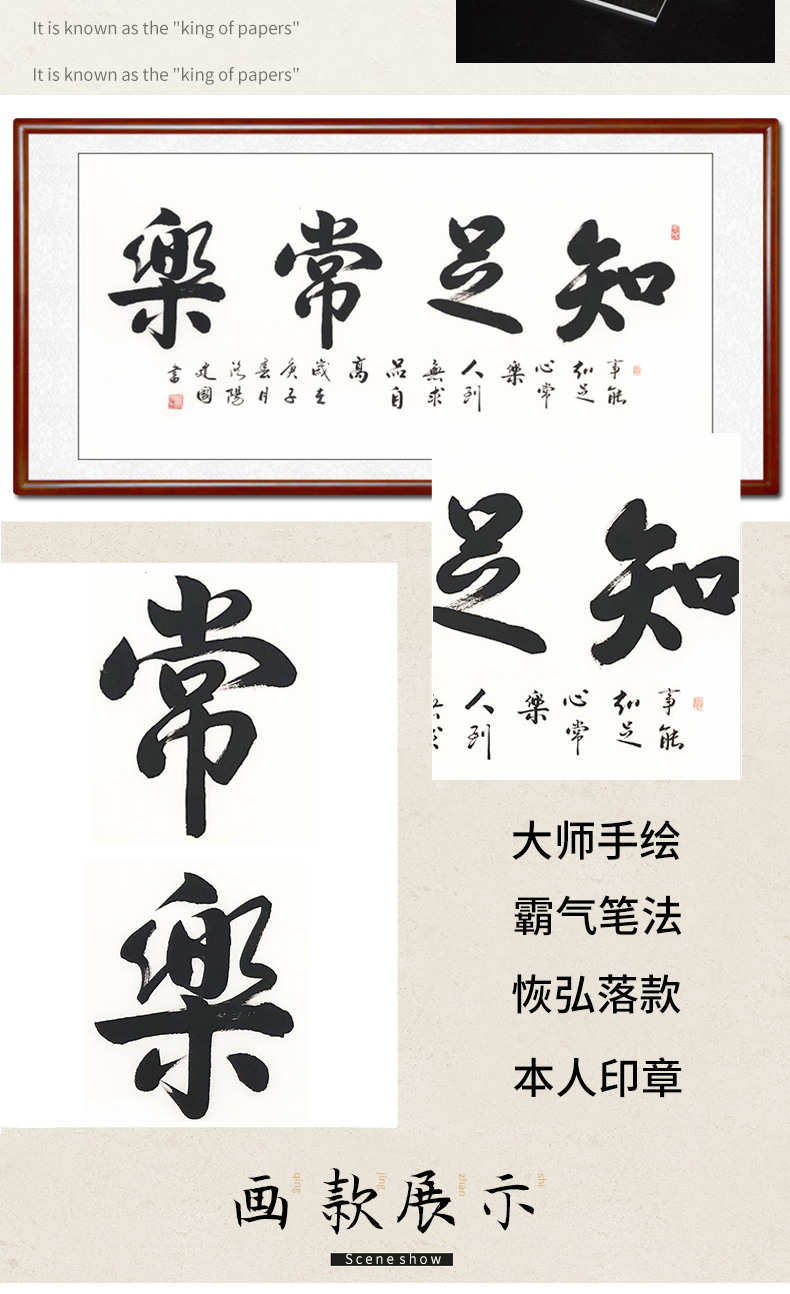 It is known as the "king of papers"
It is known as the "king of papers"
知足常樂
事能知足心常樂人到無求品自高歲在庚子春月洛陽建國書
知足
事能知足心常樂人到
常
樂
大师手绘
霸气笔法
恢弘落款
本人印章
画款展示
qing jing zhan shi
Scene show